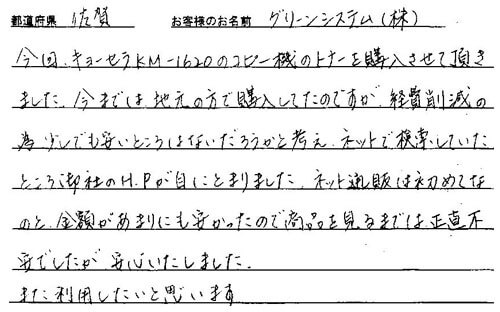 都道府県 佐賀 お客様のお名前 グリーンシステム(株)
今回、キョーセラKM-1620のコピー機のトナーを購入させて頂き
ました。今までは、地元の方で購入してたのですが、経費削減の
為少しでも安いところはないだろうかと考え、ネットで検索していた
ところ御社のH.Pが目にとまりました。ネット通販は初めてな
のと、金額があまりにも安かったので商品を見るまでは、正直不
安でしたが、安心いたしました。
また利用したいと思います